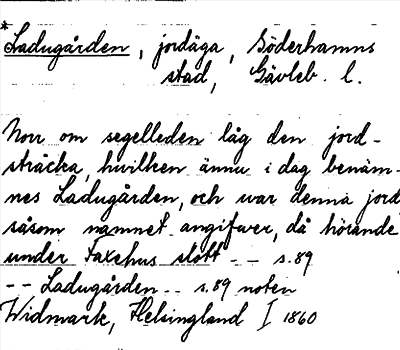 *
Ladugården, jordäga, Söderhamns
stad, Gävleb. l.
Norr om segelleden låg den jord-
sträcka, hvilken ännu i dag benäm-
nes Ladugården, och var denna jord
såsom namnet angifver, då hörande
under Faxehus slott - - s. 89
- - Ladugården - - s. 89 noten
Widmark, Helsingland I 1860